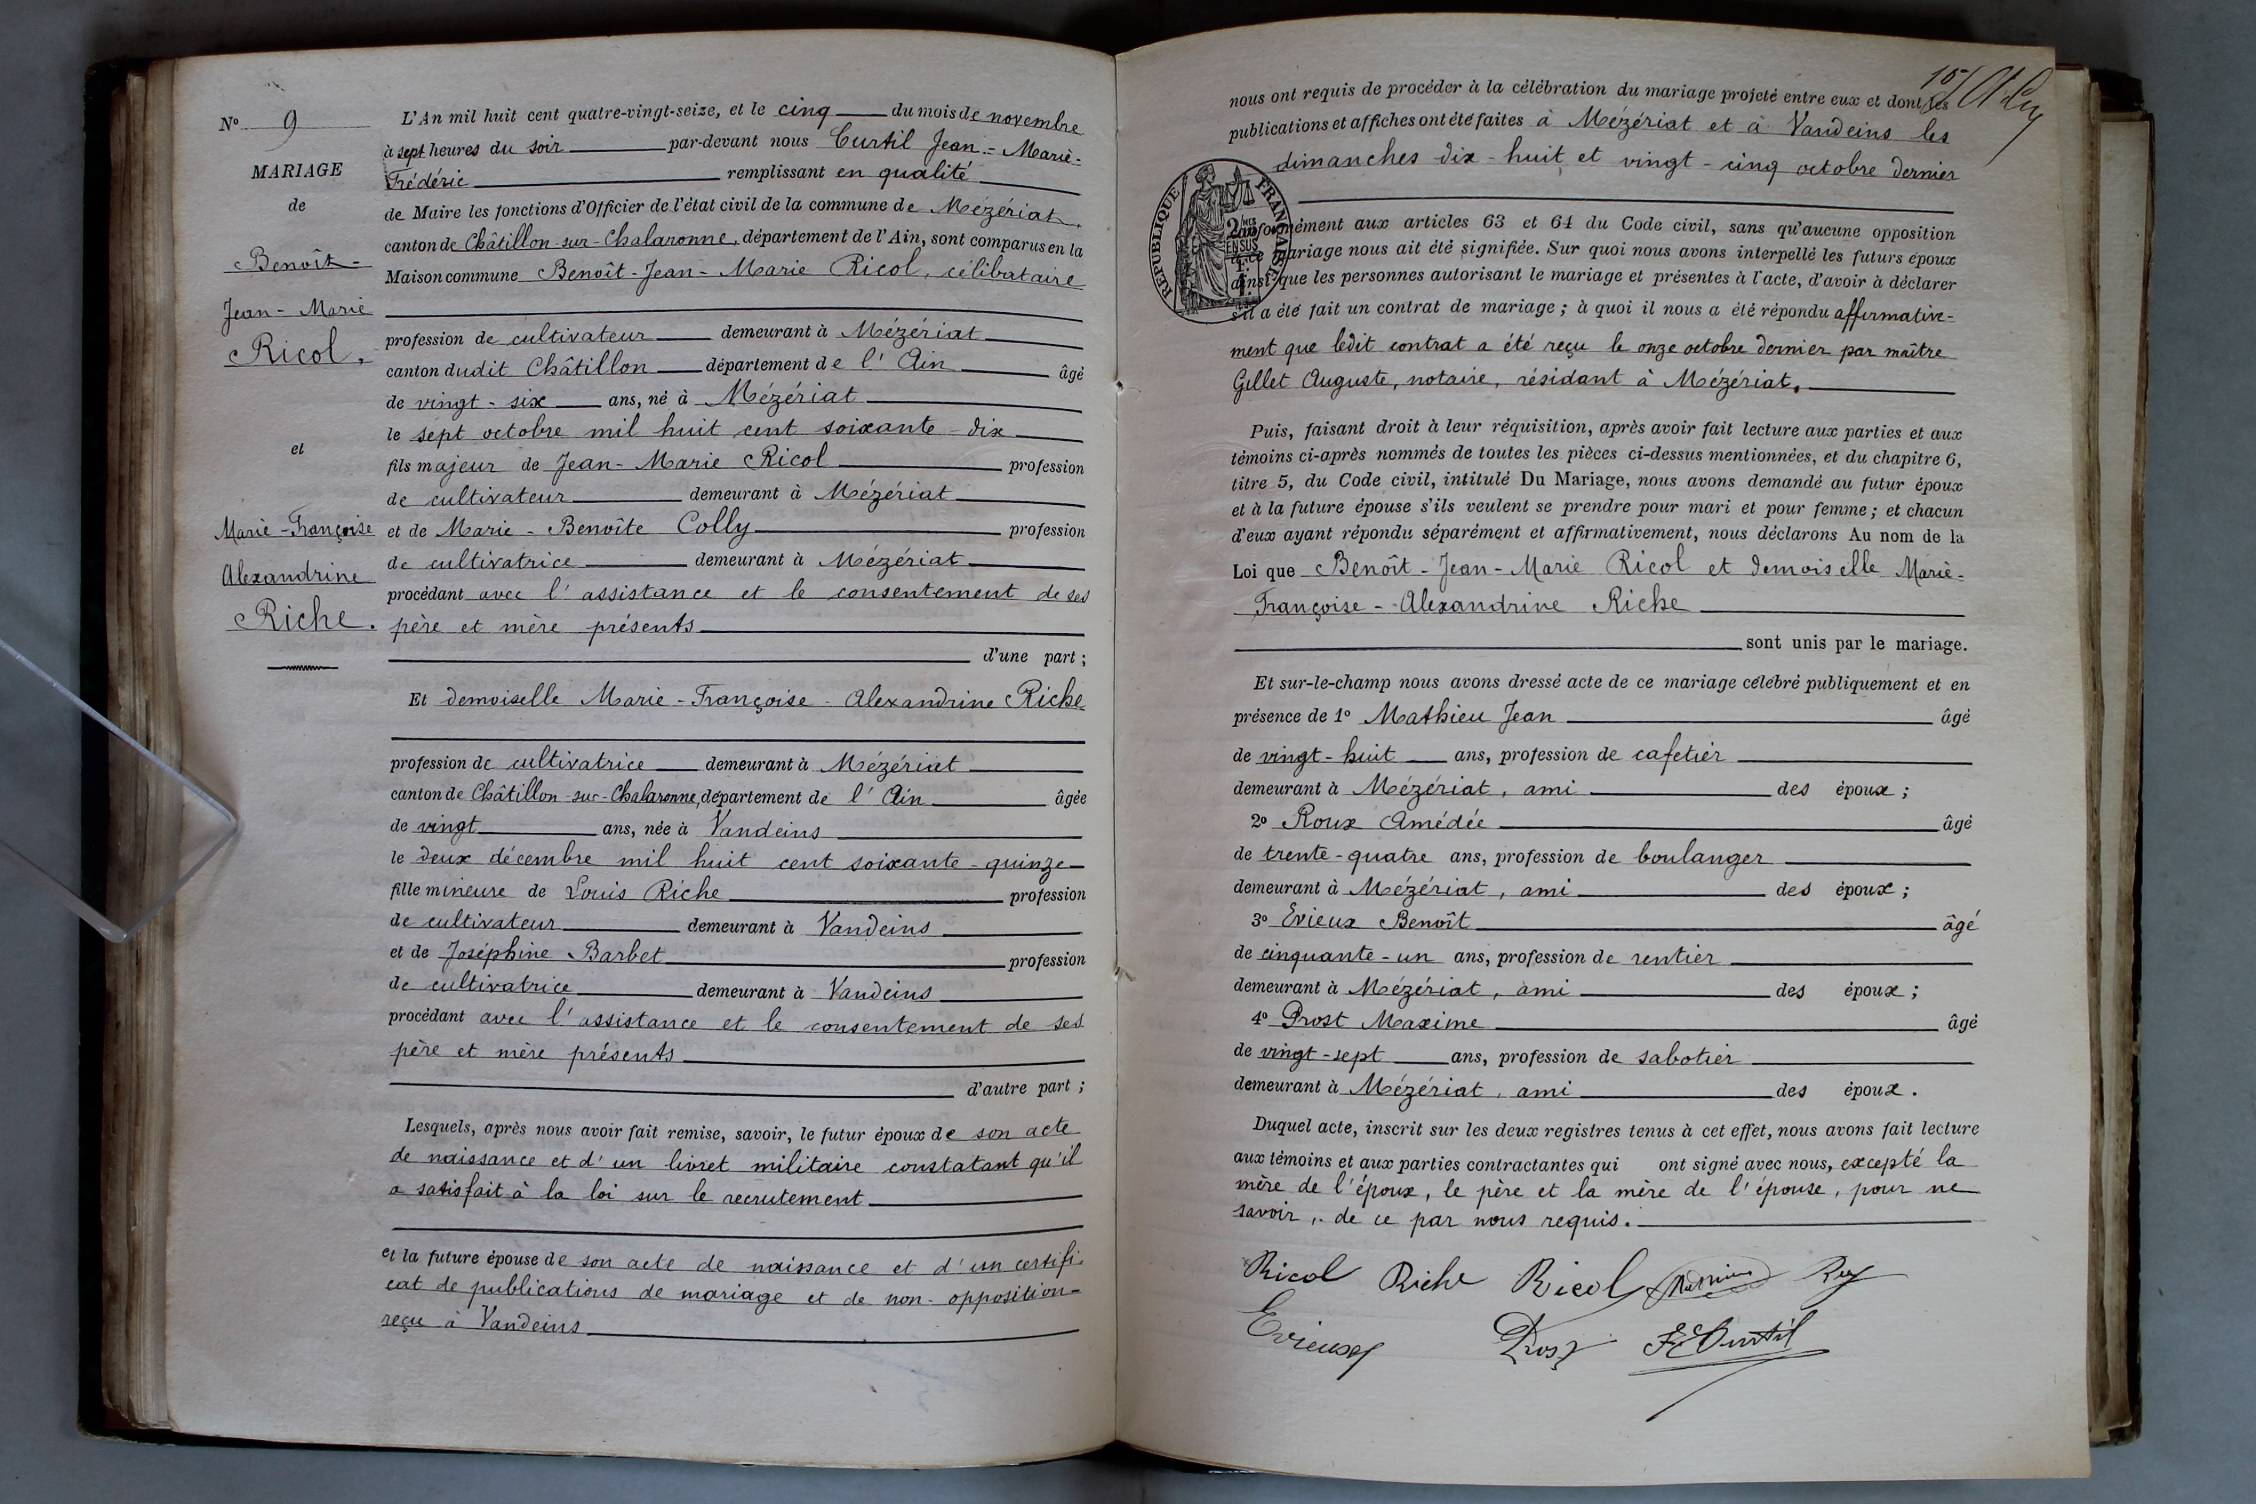 N° 9
MARIAGE
de
Benoît-
Jean-Marie
Ricol.
et
Marie-Françoise
Alexandrine
Riche.
L'An mil huit cent quatre-vingt-seize, et le cinq du mois de novembre
à sept heures du soir par-devant nous Curtil Jean-Marie-
Frédéric remplissant en qualité
de Maire les fonctions d'Officier de l'état civil de la commune de Mézériat,
canton de Châtillon-sur-Chalaronne, département de l'Ain, sont comparus en la
Maison commune Benoît-Jean-Marie Ricol, célibataire
profession de cultivateur demeurant à Mézériat
canton dudit Châtillon département de l'Ain âgé
de vingt-six ans, né à Mézériat
le sept octobre mil huit cent soixante-dix
fils majeur de Jean-Marie Ricol profession
de cultivateur demeurant à Mézériat
et de Marie-Benoîte Colly profession
de cultivatrice demeurant à Mézériat
procédant avec l'assistance et le consentement de ses
père et mère présents
d'une part ;
Et demoiselle Marie-Françoise-Alexandrine Riche
profession de cultivatrice demeurant à Mézériat
canton de Châtillon-sur-Chalaronne, département de l'Ain âgée
de vingt ans, née à Vandeins
le deux décembre mil huit cent soixante-quinze
fille mineure de Louis Riche profession
de cultivateur demeurant à Vandeins
et de Joséphine Barbet profession
de cultivatrice demeurant à Vandeins
procédant avec l'assistance et le consentement de ses
père et mère présents
d'autre part ;
Lesquels, après nous avoir fait remise, savoir, le futur époux de son acte
de naissance et d'un livret militaire constatant qu'il
a satisfait à la loi sur le recrutement
et la future épouse de son acte de naissance et d'un certifi-
cat de publications de mariage et de non-opposition
reçu à Vandeins
nous ont requis de procéder à la célébration du mariage projeté entre eux et dont les
publications et affiches ont été faites à Mézériat et à Vandeins les
dimanches dix-huit et vingt-cinq octobre dernier
RÉPUBLIQUE FRANÇAISE
conformément aux articles 63 et 64 du Code civil, sans qu'aucune opposition
à ce mariage nous ait été signifiée. Sur quoi nous avons interpellé les futurs époux
ainsi que les personnes autorisant le mariage et présentes à l'acte, d'avoir à déclarer
s'il a été fait un contrat de mariage ; à quoi il nous a été répondu affirmative-
ment que ledit contrat a été reçu le onze octobre dernier par maître
Gillet Auguste, notaire, résidant à Mézériat.
Puis, faisant droit à leur réquisition, après avoir fait lecture aux parties et aux
témoins ci-après nommés de toutes les pièces ci-dessus mentionnées, et du chapitre 6,
titre 5, du Code civil, intitulé Du Mariage, nous avons demandé au futur époux
et à la future épouse s'ils veulent se prendre pour mari et pour femme ; et chacun
d'eux ayant répondu séparément et affirmativement, nous déclarons Au nom de la
Loi que Benoît-Jean-Marie Ricol et demoiselle Marie-
Françoise-Alexandrine Riche
sont unis par le mariage.
Et sur-le-champ nous avons dressé acte de ce mariage célébré publiquement et en
présence de 1° Mathieu Jean âgé
de vingt-huit ans, profession de cafetier
demeurant à Mézériat, ami des époux ;
2° Roux Amédée âgé
de trente-quatre ans, profession de boulanger
demeurant à Mézériat, ami des époux ;
3° Evieux Benoît âgé
de cinquante-un ans, profession de rentier
demeurant à Mézériat, ami des époux ;
4° Prost Maxime âgé
de vingt-sept ans, profession de sabotier
demeurant à Mézériat, ami des époux.
Duquel acte, inscrit sur les deux registres tenus à cet effet, nous avons fait lecture
aux témoins et aux parties contractantes qui ont signé avec nous, excepté la
mère de l'époux, le père et la mère de l'épouse, pour ne
savoir, de ce par nous requis.
Ricol Riche Ricol
Evieux Prost Curtil